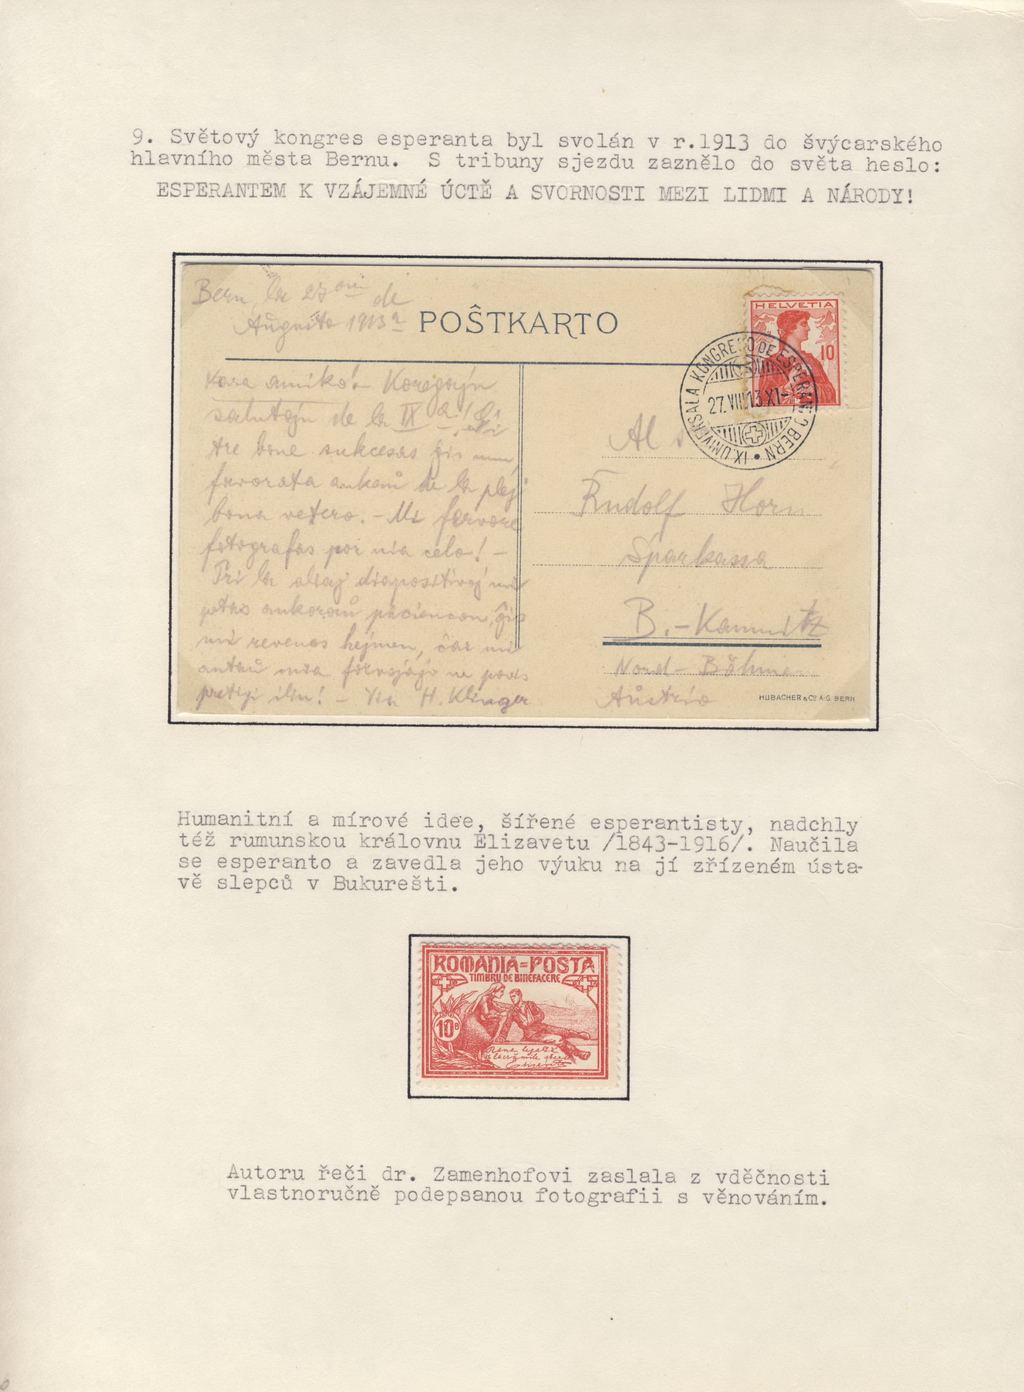 9. Světový kongres esperanta byl svolán v r.1913 do švýcarského
hlavního města Bernu. S tribuny sjezdu zaznělo do světa heslo:
ESPERANTEM K VZÁJEMNÉ ÚCTĚ A SVORNOSTI MEZI LIDMI A NÁRODY!
Bern, la 27an de
Aŭgusto 1913a
POŜTKARTO
HELVETIA
10
IX. UNIVERSALA KONGRESO DE ESPERANTO BERN
27.VIII.13.XI-
Kara amiko! Koregajn
salutojn de la IX a!
tre bone sukcesas ĝis nun,
favorata ankaŭ de la plej
bona vetero. - Mi fervore
fotografas por via celo! -
Pri la aliaj diapositivoj mi
petas ankoraŭ paciencon, ĝis
mi revenos hejmen, ĉar mi
antaŭ mia forvojaĝo ne povis
pretigi ilin! - Via H. Klinger
Al
Rudolf Horn
Sparkassa
B.-Kamnitz
Nord-Böhmen
Aŭstrio
HUBACHER & Co A.G. BERN
Humanitní a mírové idee, šířené esperantisty, nadchly
též rumunskou královnu Elizavetu /1843-1916/. Naučila
se esperanto a zavedla jeho výuku na jí zřízeném ústa-
vě slepců v Bukurešti.
ROMANIA=POSTA
TIMBRU DE BINEFACERE
10B
Autoru řeči dr. Zamenhofovi zaslala z vděčnosti
vlastnoručně podepsanou fotografii s věnováním.